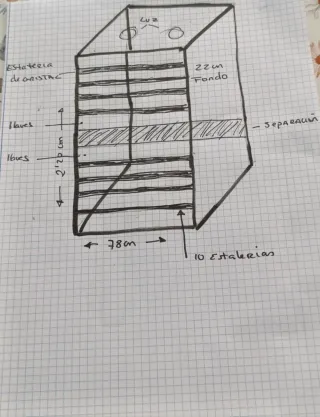 Luz
Estateria
de cristal
22 cm
Fondo
llaves
separación
llaves
2'20 cm
78 cm
10 Estalerias